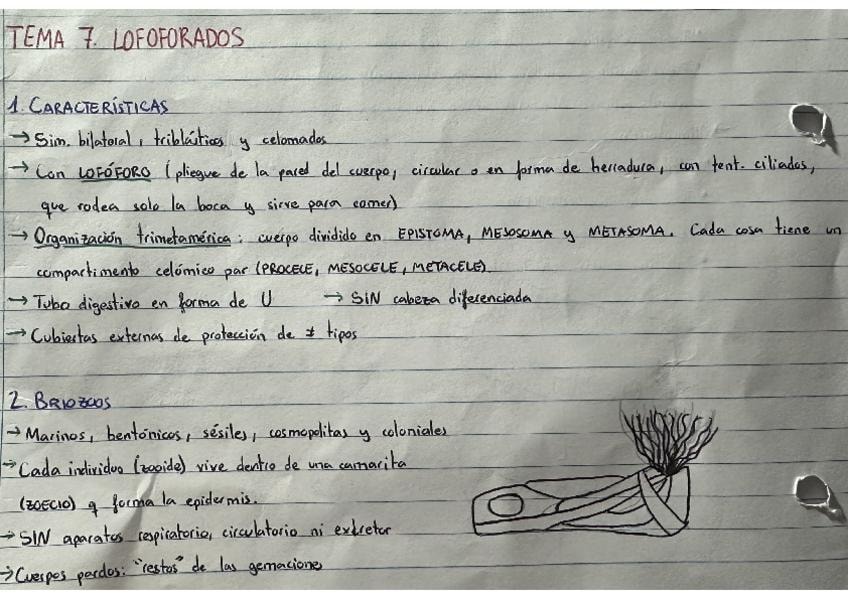 TEMA 7. LOFOFORADOS
1. CARACTERÍSTICAS
→ Sim. bilatoral, tribláticos y celomados
→ Con LOFÓFORO (pliegue de la pared del cuerpo, circular o en forma de herradura, con tent. ciliados,
que rodea solo la boca y sirve para comer)
→ Organización trimetamérica: cuerpo dividido en EPISTOMA, MESOSOMA y METASOMA. Cada cosa tiene un
compartimento celómico par (PROCELE, MESOCELE, METACELE).
→ Tubo digestivo en forma de U → SIN cabeza diferenciada
→ Cubiertas externas de protección de ≠ tipos
2. BRIOZOOS
→ Marinos, bentónicos, sésiles, cosmopolitas y coloniales
→ Cada individuo (zooide) vive dentro de una camarita
(ZOECIO) q forma la epidermis.
→ SIN aparatos respiratorio, circulatorio ni excretor
→ Cuerpos pardos: "restos" de las gemaciones